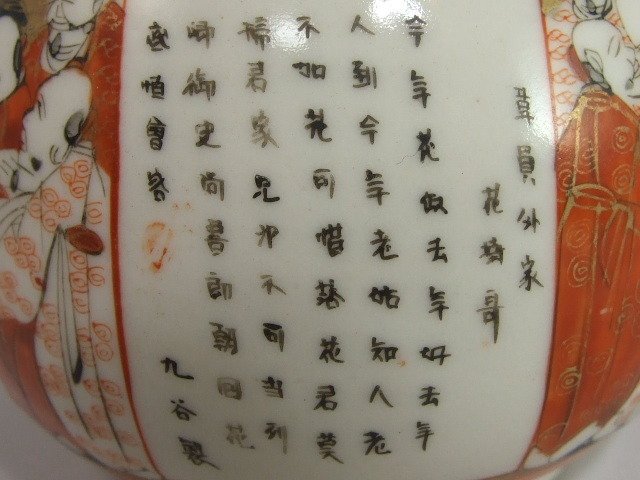 韋員外家
花樹哥
今年花似去年好去年
人到今年老始知人老
不如花可惜落花君莫
掃君家兄弟不可当列
卿御史尚書郎朝回花
底恒會客
九谷製